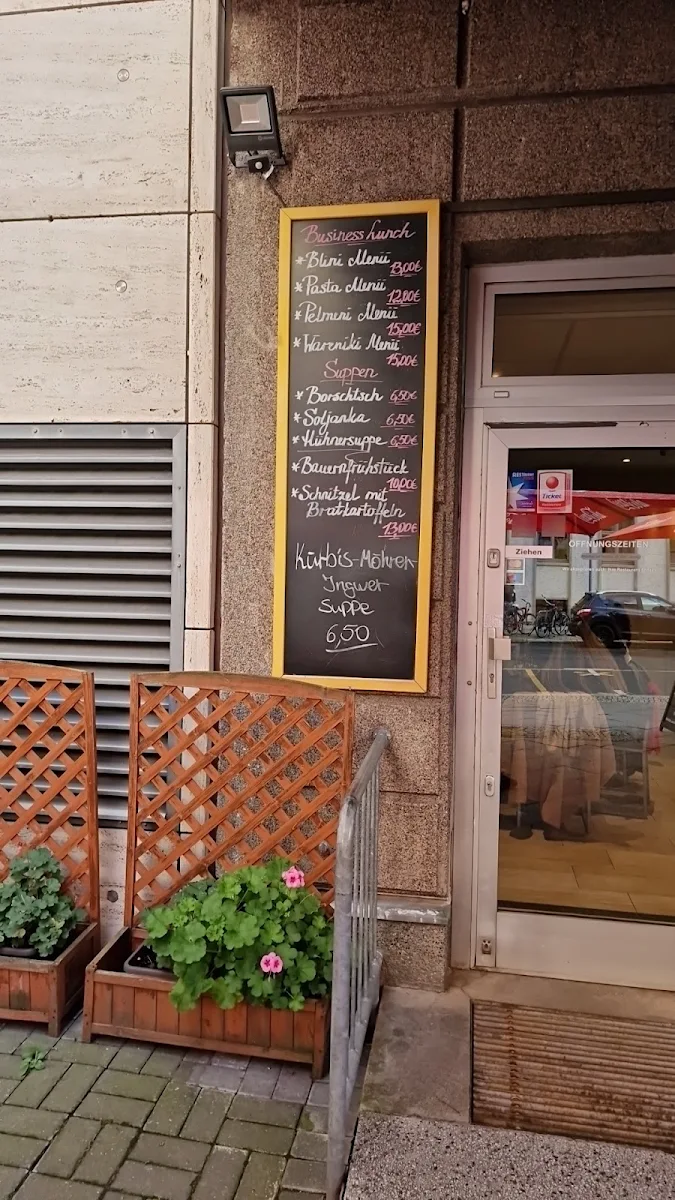 Business Lunch
*Blini Menü
13,00€
*Pasta Menü
12,00€
*Pelmeni Menü
15,00€
*Wareniki Menü
15,00€
Suppen
*Borschtsch 6,50€
*Soljanka 6,50€
*Hühnersuppe 6,50€
*Bauernfrühstück
10,00€
*Schnitzel mit
Bratkartoffeln
13,00€
Kürbis-Möhren
Ingwer
Suppe
6,50
Ticket
ÖFFNUNGSZEITEN
Ziehen